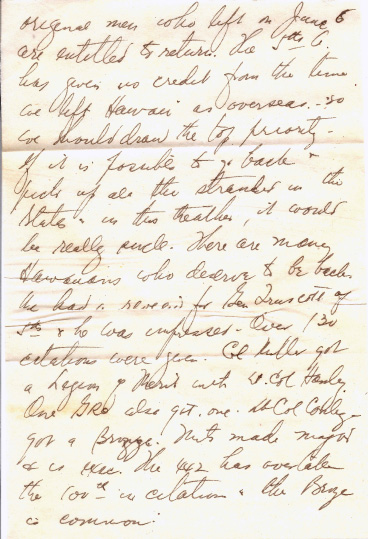 original men who left on June 5
are entitled to return. The 5th A.
has given us credit from the time
we left Hawaii as overseas - so
we should draw the top priority -
If it is possible to go back &
pick up all the stranded in the
States & in this theather, it would
be really swell. There are many
Hawaiians who deserve to be back.
We had a review for Gen Truscott of
5th & he was impressed - Over 130
citations were given. Col Miller got
a Legion of Merit with Lt Col Hanley.
One GRO also got one. Lt Col Conley
got a Bronze. made major
& is exec. The 442 has overtaken
the 100th in citations & the Bronze
is common.